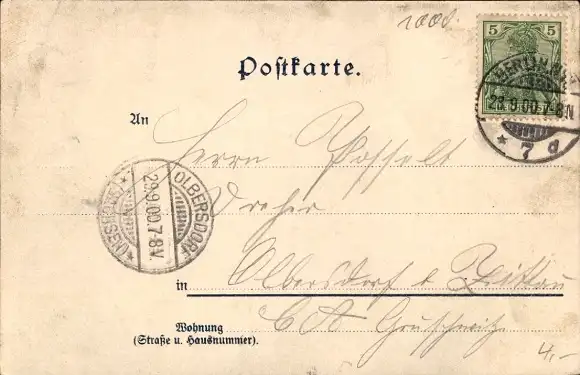 1008.
5
5
Postkarte.
BERLIN N.W.
28.9.00.7-8N
* 7 d
An
Herrn Posselt
Dreher
OLBERSDORF
29.9.00.7-8V.
*(AMTSH.
in Olbersdorf b Zittau
Wohnung
(Straße u. Hausnummer).
4,-